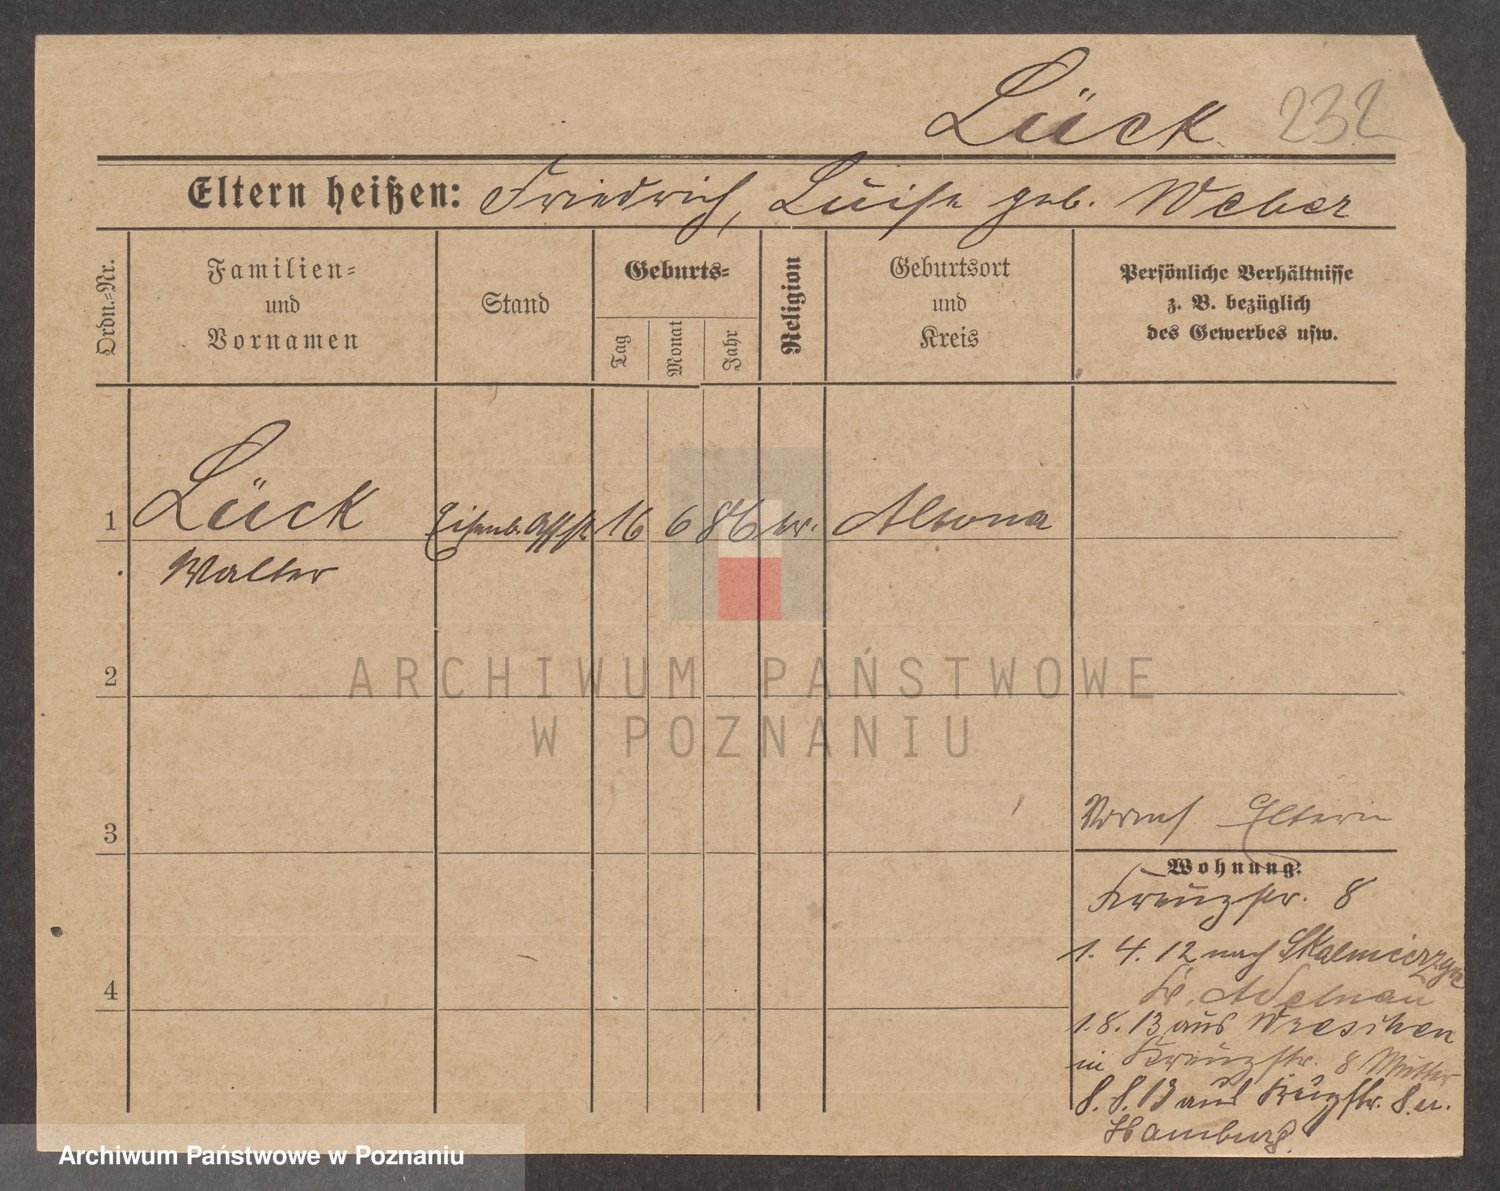 Lück 232
Eltern heißen: Friedrich, Luise geb. Weber
Ordn.-Nr.
Familien-
und
Vornamen
Stand
Geburts-
Tag
Monat
Jahr
Religion
Geburtsort
und
Kreis
Persönliche Verhältnisse
z. B. bezüglich
des Gewerbes usw.
1 Lück Eisenb. Asst. 16 6 86 ev. Altona
Walter
2
ARCHIWUM PAŃSTWOWE
W POZNANIU
3
Eltern
Wohnung:
Kreuzstr. 8
1. 4. 12 nach Skalmierzyce
4
Kr. Adelnau
1. 8. 13 aus Wreschen
in Kreuzstr. 8 Mutter
8. 8. 13 aus Kreuzstr. 8 n.
Hamburg.
Archiwum Państwowe w Poznaniu